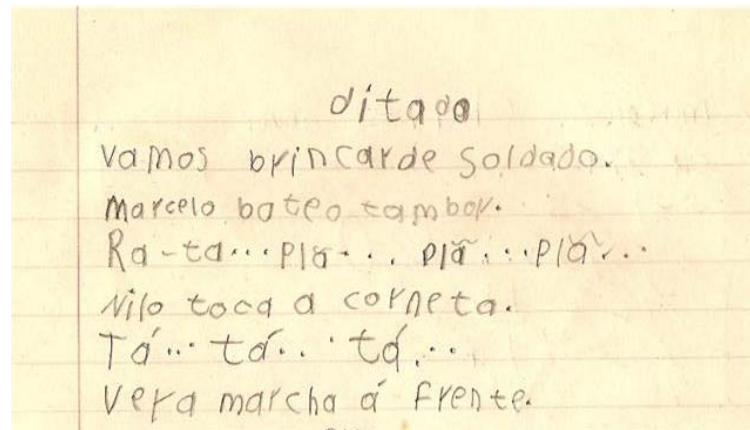 ditado
Vamos brincarde Soldado.
Marcelo bateo tambor.
Ra-ta... Plã... plã... plã...
Nilo toca a corneta.
Tá... tá... tá...
Vera marcha á frente.